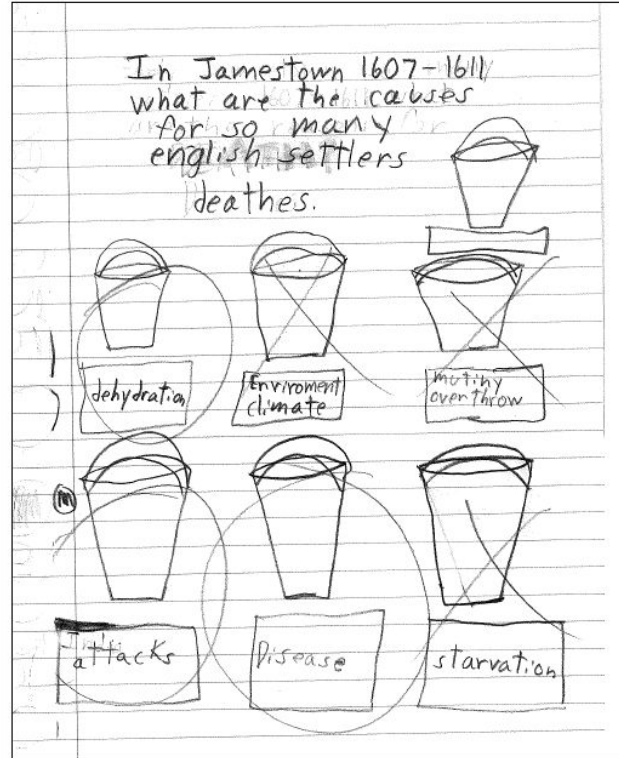 In Jamestown 1607-1611
what are the causes
for so many
english settlers
deathes.
dehydration
Enviroment
climate
mutiny
overthrow
attacks
Disease
starvation